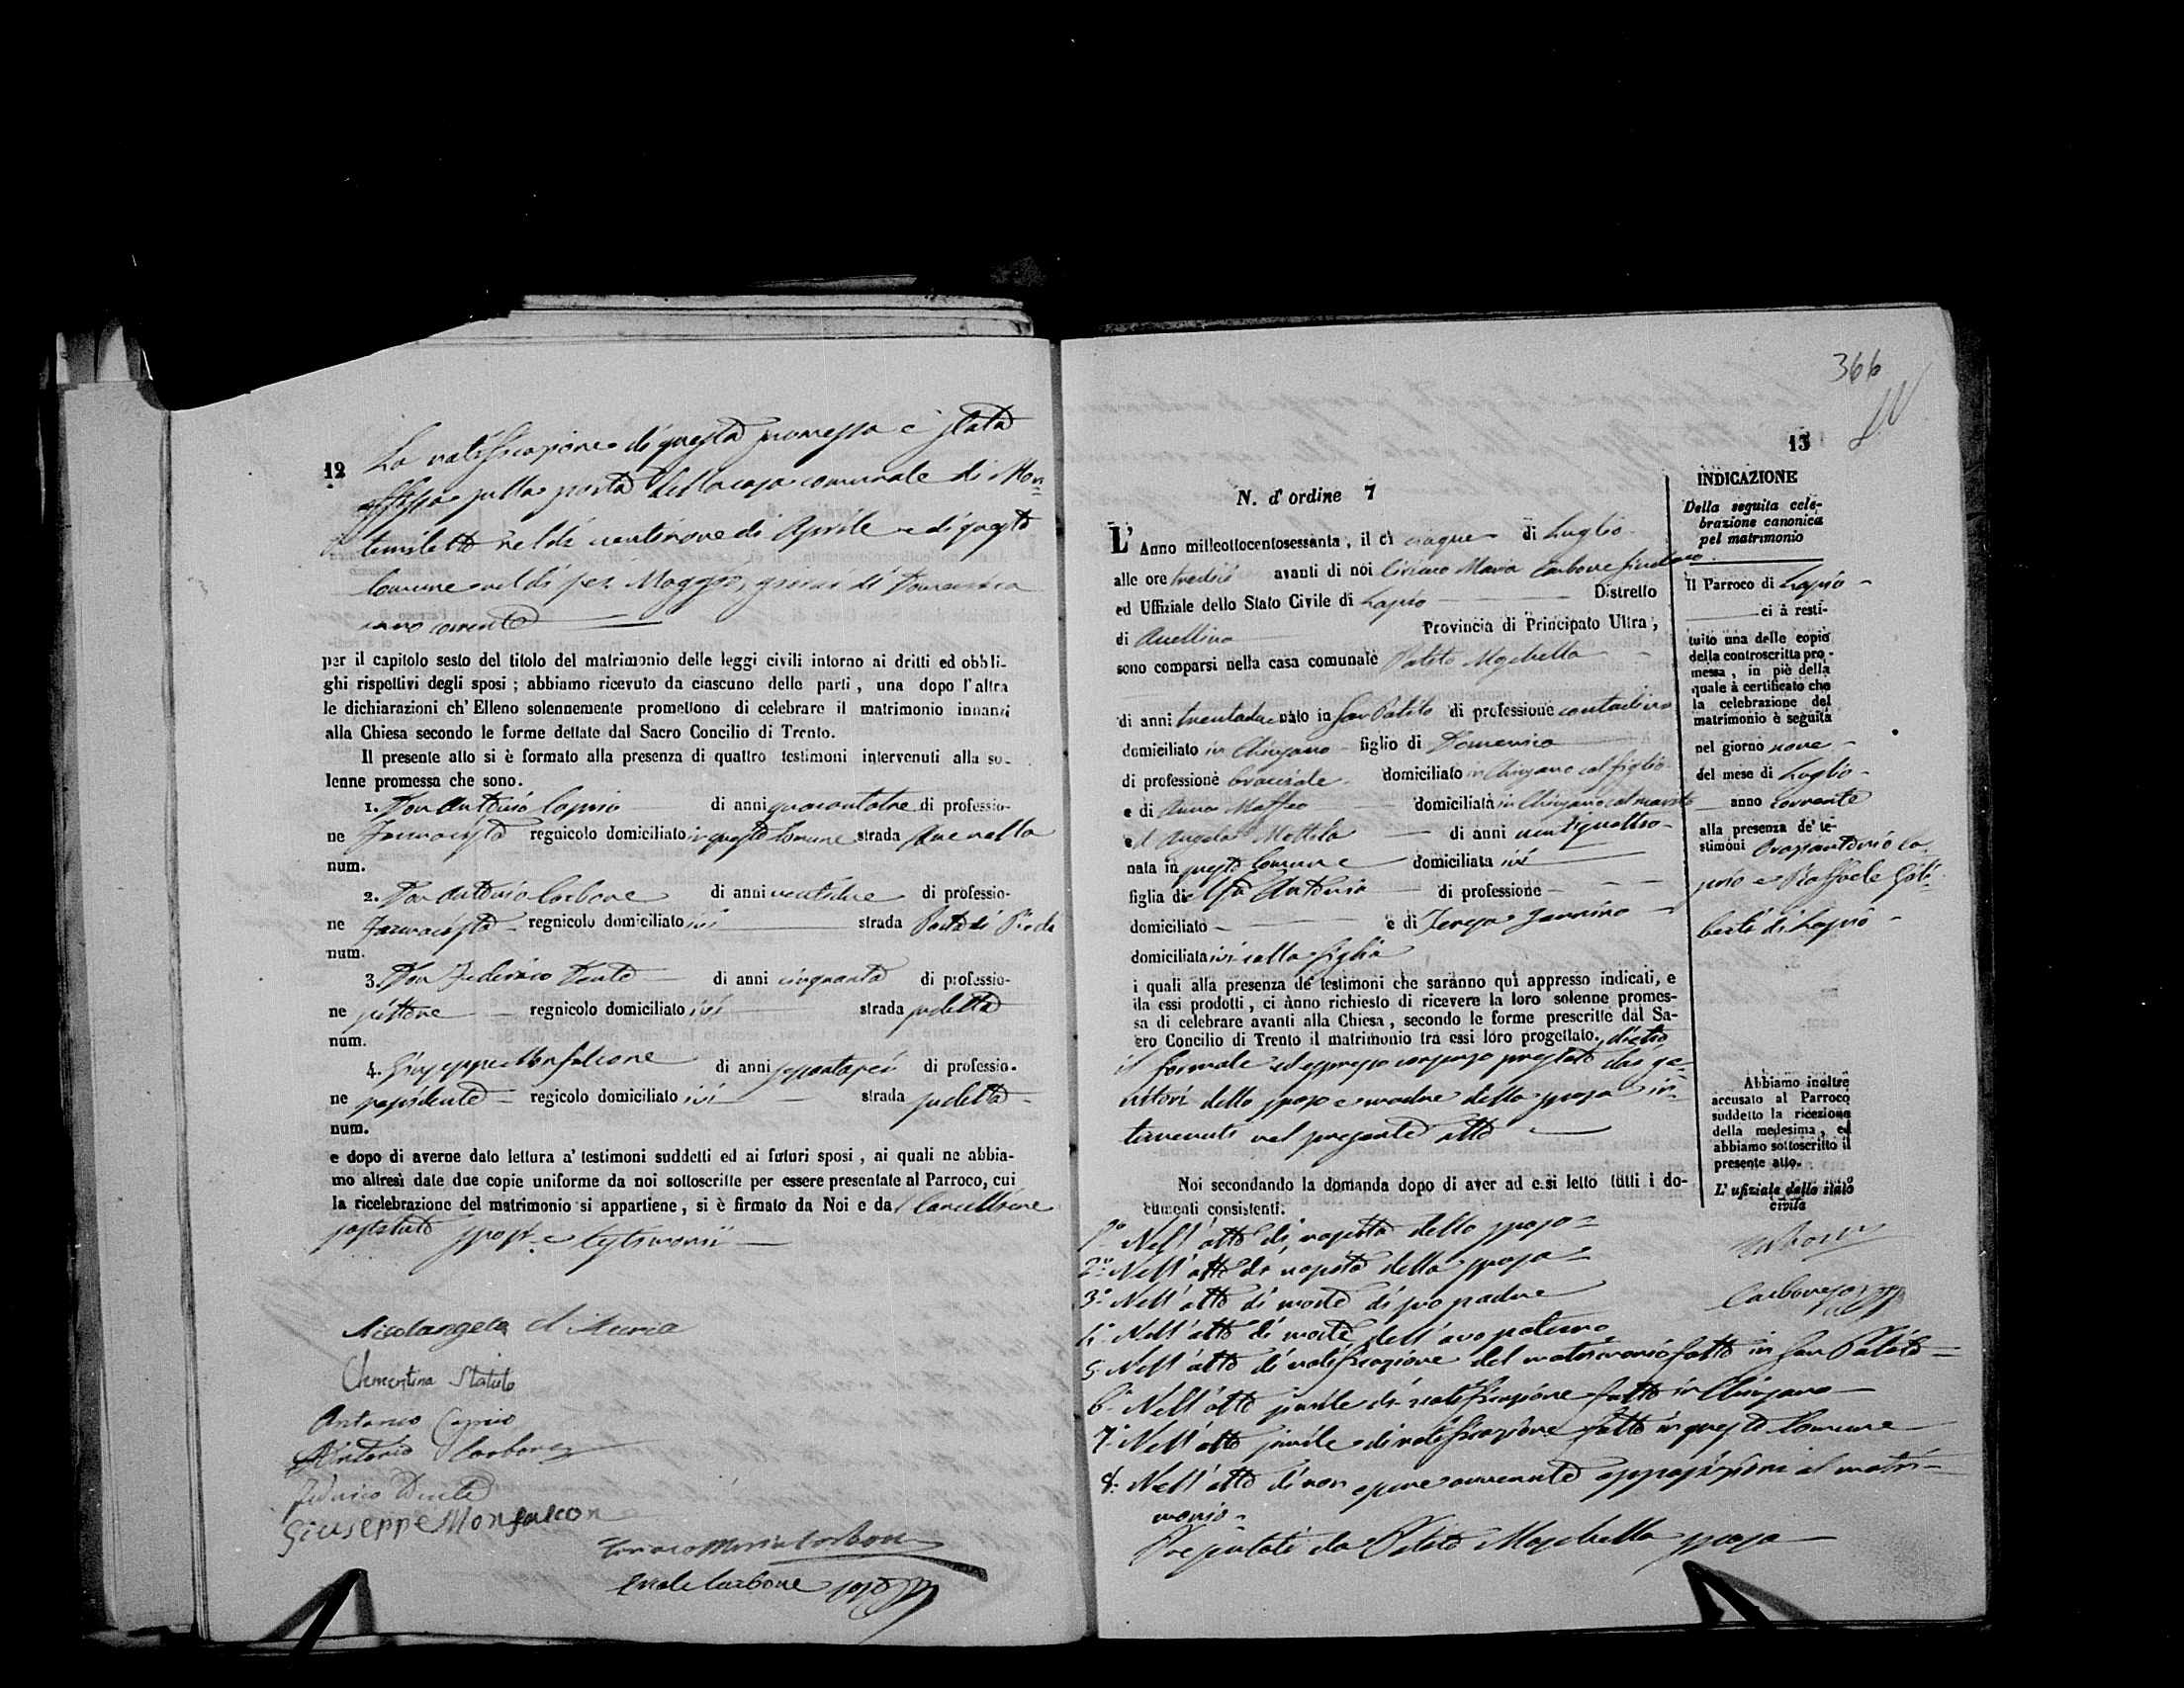 12
La notificazione di questa promessa è stata
affissa sulla porta della casa comunale di Mon=
temiletto nel dì ventinove di Aprile e di questo
Comune nel dì sei Maggio, giorni di Domenica
anno corrente
per il capitolo sesto del titolo del matrimonio delle leggi civili intorno ai dritti ed obbli-
ghi rispettivi degli sposi ; abbiamo ricevuto da ciascuno delle parti , una dopo l'altra
le dichiarazioni ch' Elleno solennemente promettono di celebrare il matrimonio innanzi
alla Chiesa secondo le forme dettate dal Sacro Concilio di Trento.
Il presente atto si è formato alla presenza di quattro testimoni intervenuti alla so-
lenne promessa che sono.
1. Don Antonio Caprio di anni quarantatre di professio-
ne Farmacista regnicolo domiciliato in questo Comune strada
num.
2. Don Antonio Carbone di anni ventidue di professio-
ne Farmacista regnicolo domiciliato ivi strada Porta di Piedi
num.
3. Don Federico Dente di anni cinquanta di professio-
ne pittore regnicolo domiciliato ivi strada sudetta
num.
4. Giuseppe Monfalcone di anni sessantasei di professio-
ne possidente regicolo domiciliato ivi strada sudetta
num.
e dopo di averne dato lettura a' testimoni suddetti ed ai futuri sposi , ai quali ne abbia-
mo altresì date due copie uniforme da noi sottoscritte per essere presentate al Parroco, cui
la ricelebrazione del matrimonio si appartiene , si è firmato da Noi e da l Cancelliere
sostituto sposi e testimonii
Nicolangelo d'Auria
Clementina Statuto
Antonio Caprio
Antonio Carbone
Federico Dente
Giuseppe Monfalcon
Ciriaco Maria Carbone
Carbone sost
366
13
N. d' ordine 7
L' Anno milleottocentosessanta , il dì cinque di Luglio
alle ore tredici avanti di noi Ciriaco Maria Carbone Sindaco
ed Uffiziale dello Stato Civile di Lapio Distretto
di Avellino Provincia di Principato Ultra ,
sono comparsi nella casa comunale Potito Moschella
di anni trentadue nato in San Potito di professione contadino
domiciliato in Chiusano figlio di Domenico
di professione bracciale domiciliato in Chiusano col figlio
e di Anna Maffeo domiciliata in Chiusano col marito
ed Angela Mottola di anni ventiquattro
nata in questo Comune domiciliata ivi
figlia di Antonio di professione
domiciliato e di Teresa Jannino
domiciliata ivi colla figlia
i quali alla presenza de' testimoni che saranno quì appresso indicati, e
da essi prodotti , ci ànno richiesto di ricevere la loro solenne promes-
sa di celebrare avanti alla Chiesa , secondo le forme prescritte dal Sa-
cro Concilio di Trento il matrimonio tra essi loro progettato. dietro
il formale ed espresso consenso prestato dai ge=
nitori dello sposo e madre della sposa in=
tervenuti nel presente atto
Noi secondando la domanda dopo di aver ad essi letto tutti i do-
cumenti consistenti.
1º Nell' atto di nascita dello sposo =
2º Nell' atto di nascita della sposa =
3º Nell' atto di morte di suo padre
4º Nell' atto di morte dell' avo paterno
5º Nell' atto di notificazione del matrimonio fatto in San Potito =
6º Nell' atto simile di notificazione fatto in Chiusano
7º Nell' atto simile di notificazione fatto in questo Comune
8º Nell' atto di non essere avvenute opposizioni al matri=
monio
Presentati da Potito Moschella sposo
INDICAZIONE
Della seguita cele-
brazione canonica
pel matrimonio
Il Parroco di Lapio
ci à resti-
tuito una delle copie
della controscritta pro-
messa , in piè della
quale à certificato che
la celebrazione del
matrimonio è seguita
nel giorno nove
del mese di Luglio
anno corrente
alla presenza de' te-
stimoni Ca
prio e Raffaele Gili=
berti di Lapio
Abbiamo inoltre
accusato al Parroco
suddetto la ricezione
della medesima , ed
abbiamo sottoscritto il
presente atto.
L' ufiziale dello stato
civile
Carbone
Carbone sost